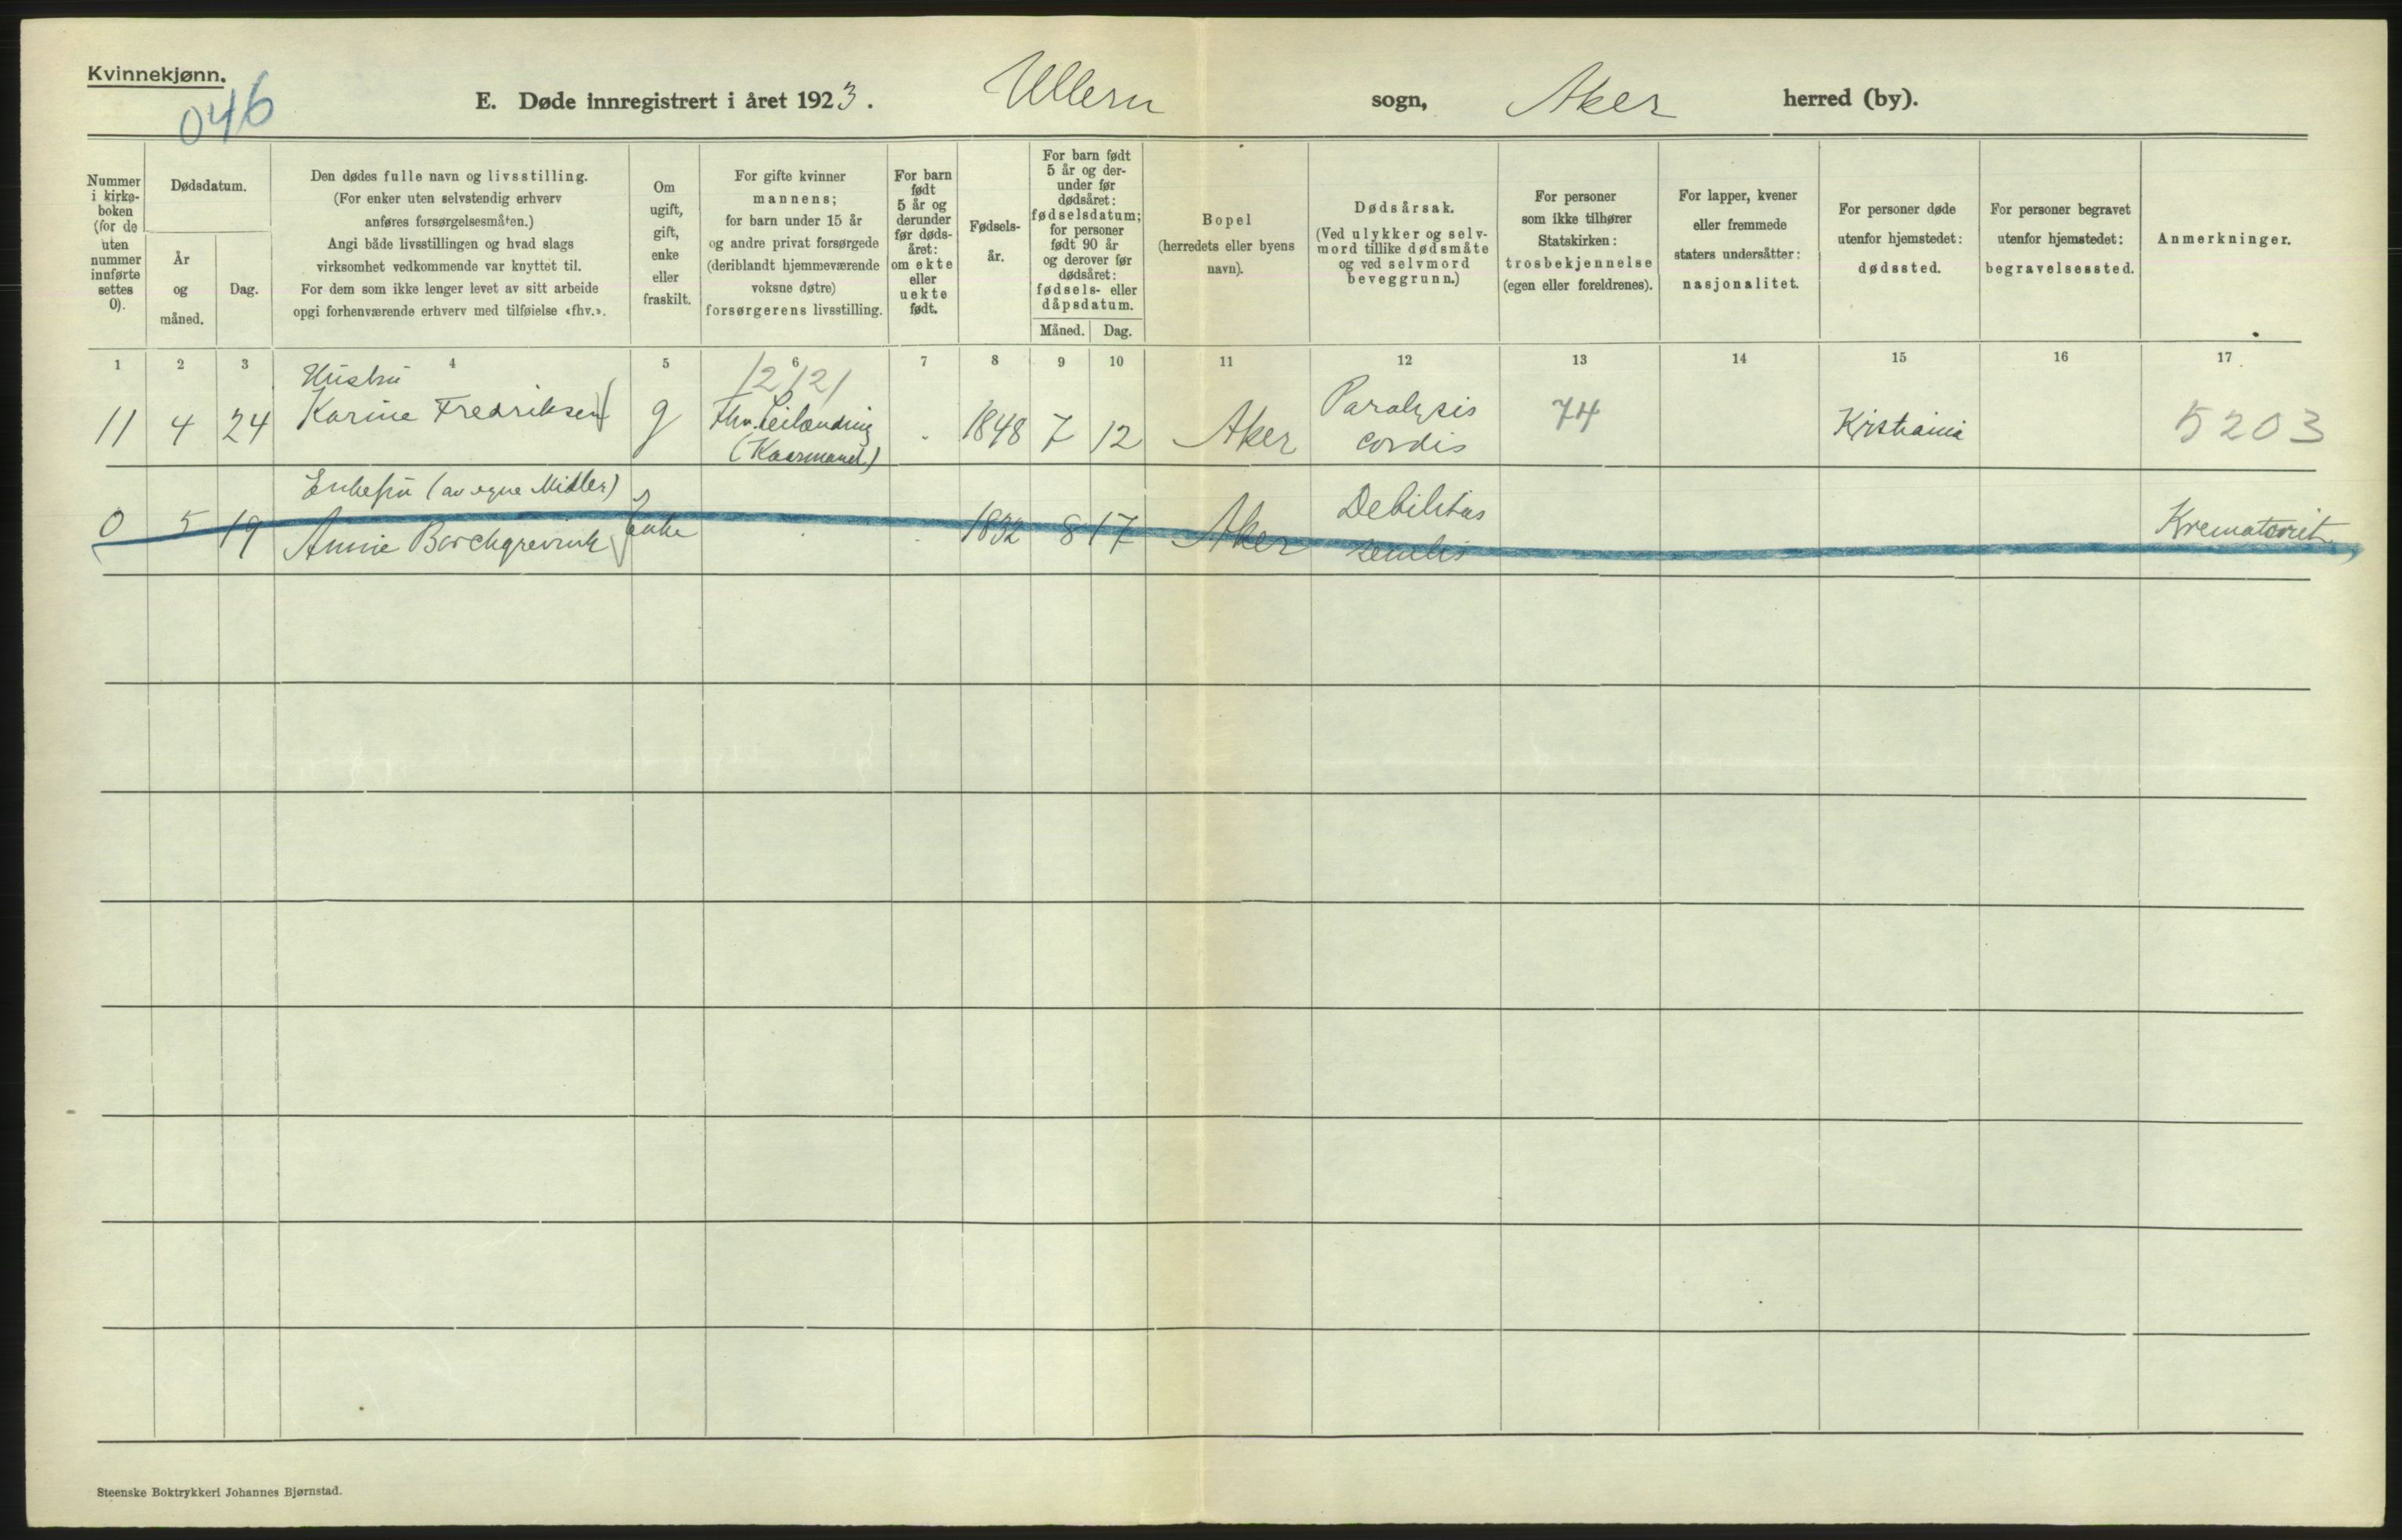 Kvinnekjønn.
046
E. Døde innregistrert i året 1923. Ullern sogn, Aker herred (by).
Nummer i kirke-boken (for de uten nummer innførte settes 0).
Dødsdatum.
År og måned.
Dag.
Den dødes fulle navn og livsstilling.
(For enker uten selvstendig erhverv
anføres forsørgelsesmåten.)
Angi både livsstillingen og hvad slags
virksomhet vedkommende var knyttet til.
For dem som ikke lenger levet av sitt arbeide
opgi forhenværende erhverv med tilføielse «fhv.».
Om
ugift,
gift,
enke
eller
fraskilt.
For gifte kvinner
mannens;
for barn under 15 år
og andre privat forsørgede
(deriblandt hjemmeværende
voksne døtre)
forsørgerens livsstilling.
For barn
født
5 år og
derunder
før døds-
året:
om ekte
eller
uekte
født.
Fødsels-
år.
For barn født
5 år og der-
under før
dødsåret:
fødselsdatum;
for personer
født 90 år
og derover før
dødsåret:
fødsels- eller
dåpsdatum.
Måned. Dag.
Bopel
(herredets eller byens
navn).
Dødsårsak.
(Ved ulykker og selv-
mord tillike dødsmåte
og ved selvmord
beveggrunn.)
For personer
som ikke tilhører
Statskirken:
trosbekjennelse
(egen eller foreldrenes).
For lapper, kvener
eller fremmede
staters undersåtter:
nasjonalitet.
For personer døde
utenfor hjemstedet:
dødssted.
For personer begravet
utenfor hjemstedet:
begravelsessted.
Anmerkninger.
1 2 3 4 5 6 7 8 9 10 11 12 13 14 15 16 17
Hustru 12121
11 4 24 Karine Fredriksen g Fhv. Leilænding (Kaarmand) 1848 7 12 Aker Paralysis cordis 74 Kristiania 5203
Enkefru (av egne Midler)
0 5 19 Annie Borchgrevink Enke 1832 8 17 Aker Debilitas senilis Krematoriet
Steenske Boktrykkeri Johannes Bjørnstad.